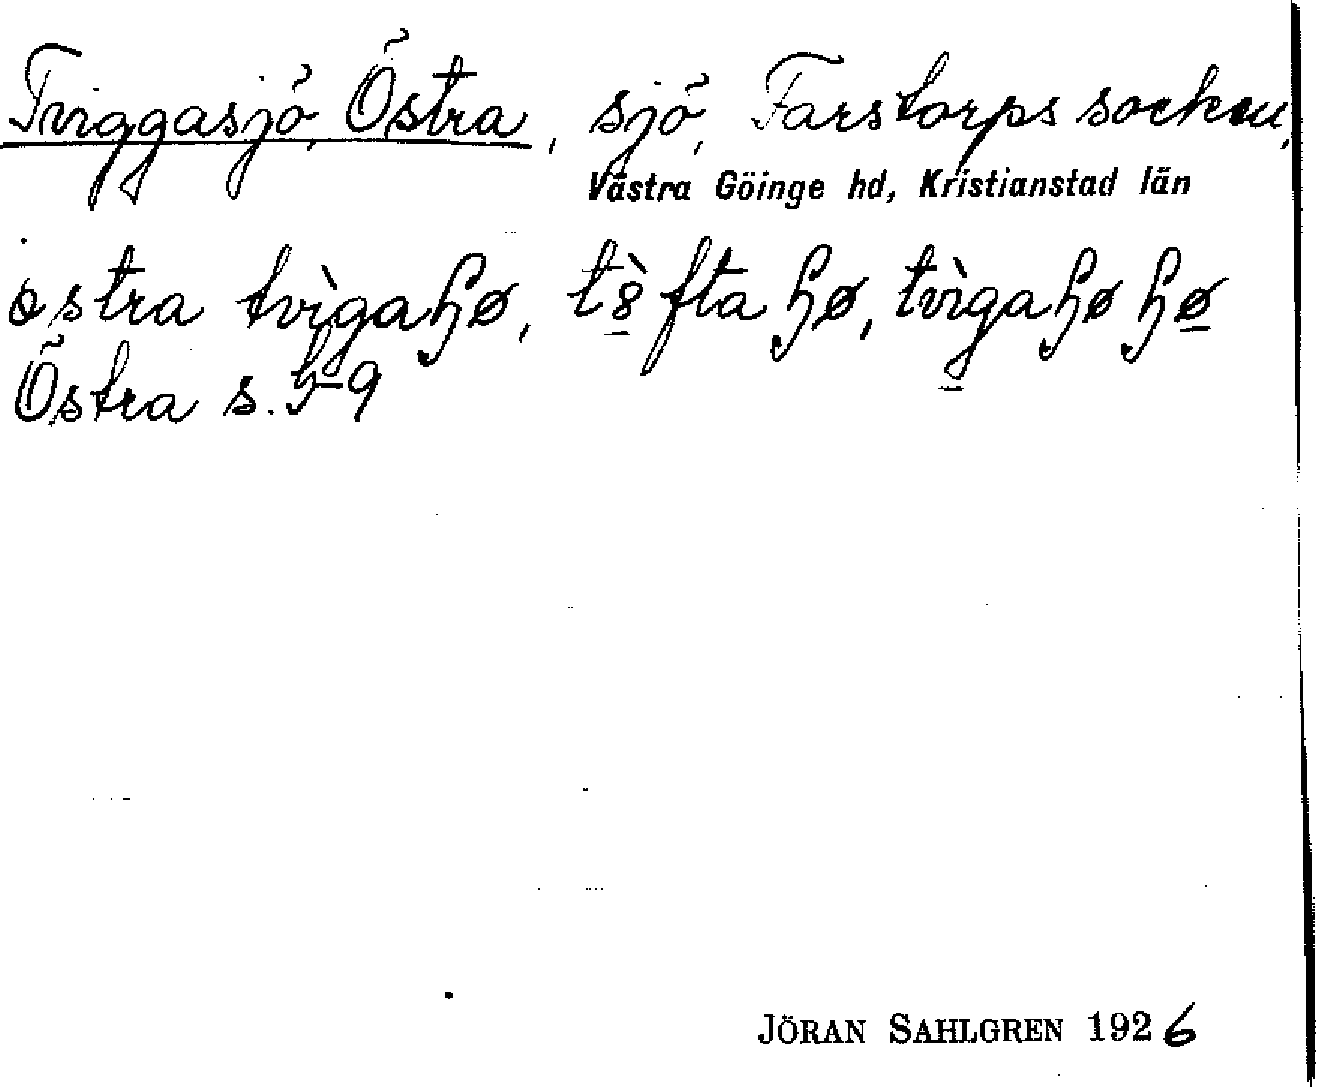 Tviggasjö, Östra, sjö, Farstorps socken,
Västra Göinge hd, Kristianstad län
östra tvìgaɧø, tè̱fta ɧø, tvìgaɧø ɧø
Östra s. ɧ-9
JÖRAN SAHLGREN 1926